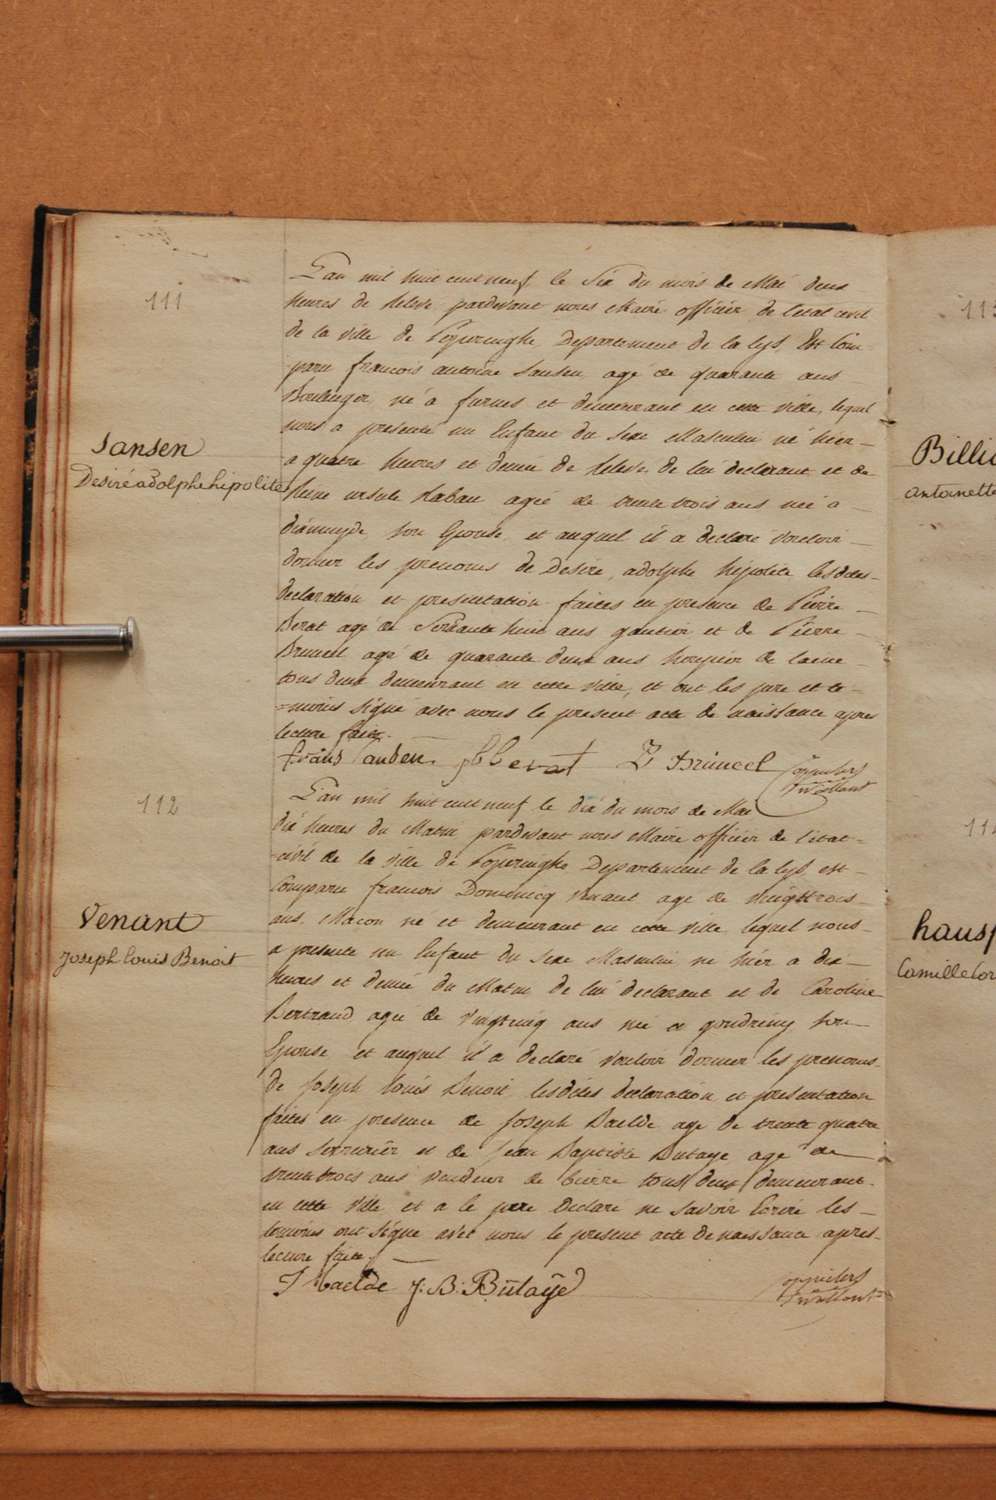 111
Jansen
Desiré adolphe hipolite
L'an mil huit cent neuf le Six du mois de Mai deux
heures de Relevé pardevant nous Maire officier de l'etat civil
de la ville de Poperinghe Departement de la lys Est Com
paru francois antoine Jansen agé de quarante ans
Boulanger né à furnes et demeurant en cette ville, lequel
nous a presenté un Enfant du Sexe Masculin né hier
a quatre heures et demie de Relevé de lui declarant et de
ursule agée de trente trois ans née a
dixmuyde son Epouse et auquel il a declaré vouloir
donner les prenoms de Desire, adolphe hipolite lesdites
declaration et presentation faites en presence de Pierre
Berat agé de Soixante huit ans gantier et de Pierre
Bruneel agé de quarante deux ans de laine
tous deux demeurant en cette ville, et ont les pere et te
moins signé avec nous le present acte de naissance apres
lecture faite.
frans Jansen P Berat P Bruneel
112
Venant
Joseph Louis Benoit
L'an mil huit cent neuf le dix du mois de Mai
dix heures du Matin pardevant nous Maire officier de l'etat
civil de la ville de Poperinghe Departement de la lys est
Comparu francois Domenicq Venant agé de vingt trois
ans Macon né et demeurant en cette ville lequel nous
a presenté un Enfant du Sexe Masculin né hier a dix
heures et demie du Matin de lui declarant et de Caroline
Bertrand agee de vingt cinq ans née a son
Epouse et auquel il a declaré vouloir donner les prenoms
de Joseph Louis Benoit lesdites declaration et presentation
faites en presence de Joseph Baelde agé de trente quatre
ans Serrurier et de Jean Baptiste Butaye agé de
trente trois ans vendeur de bierre tous deux demeurant
en cette ville et a le pere Declaré ne savoir Ecrire les
temoins ont signé avec nous le present acte de naissance apres
lecture faite
J Baelde J: B: Butaÿe
Billi
antoinette
haus
Camille